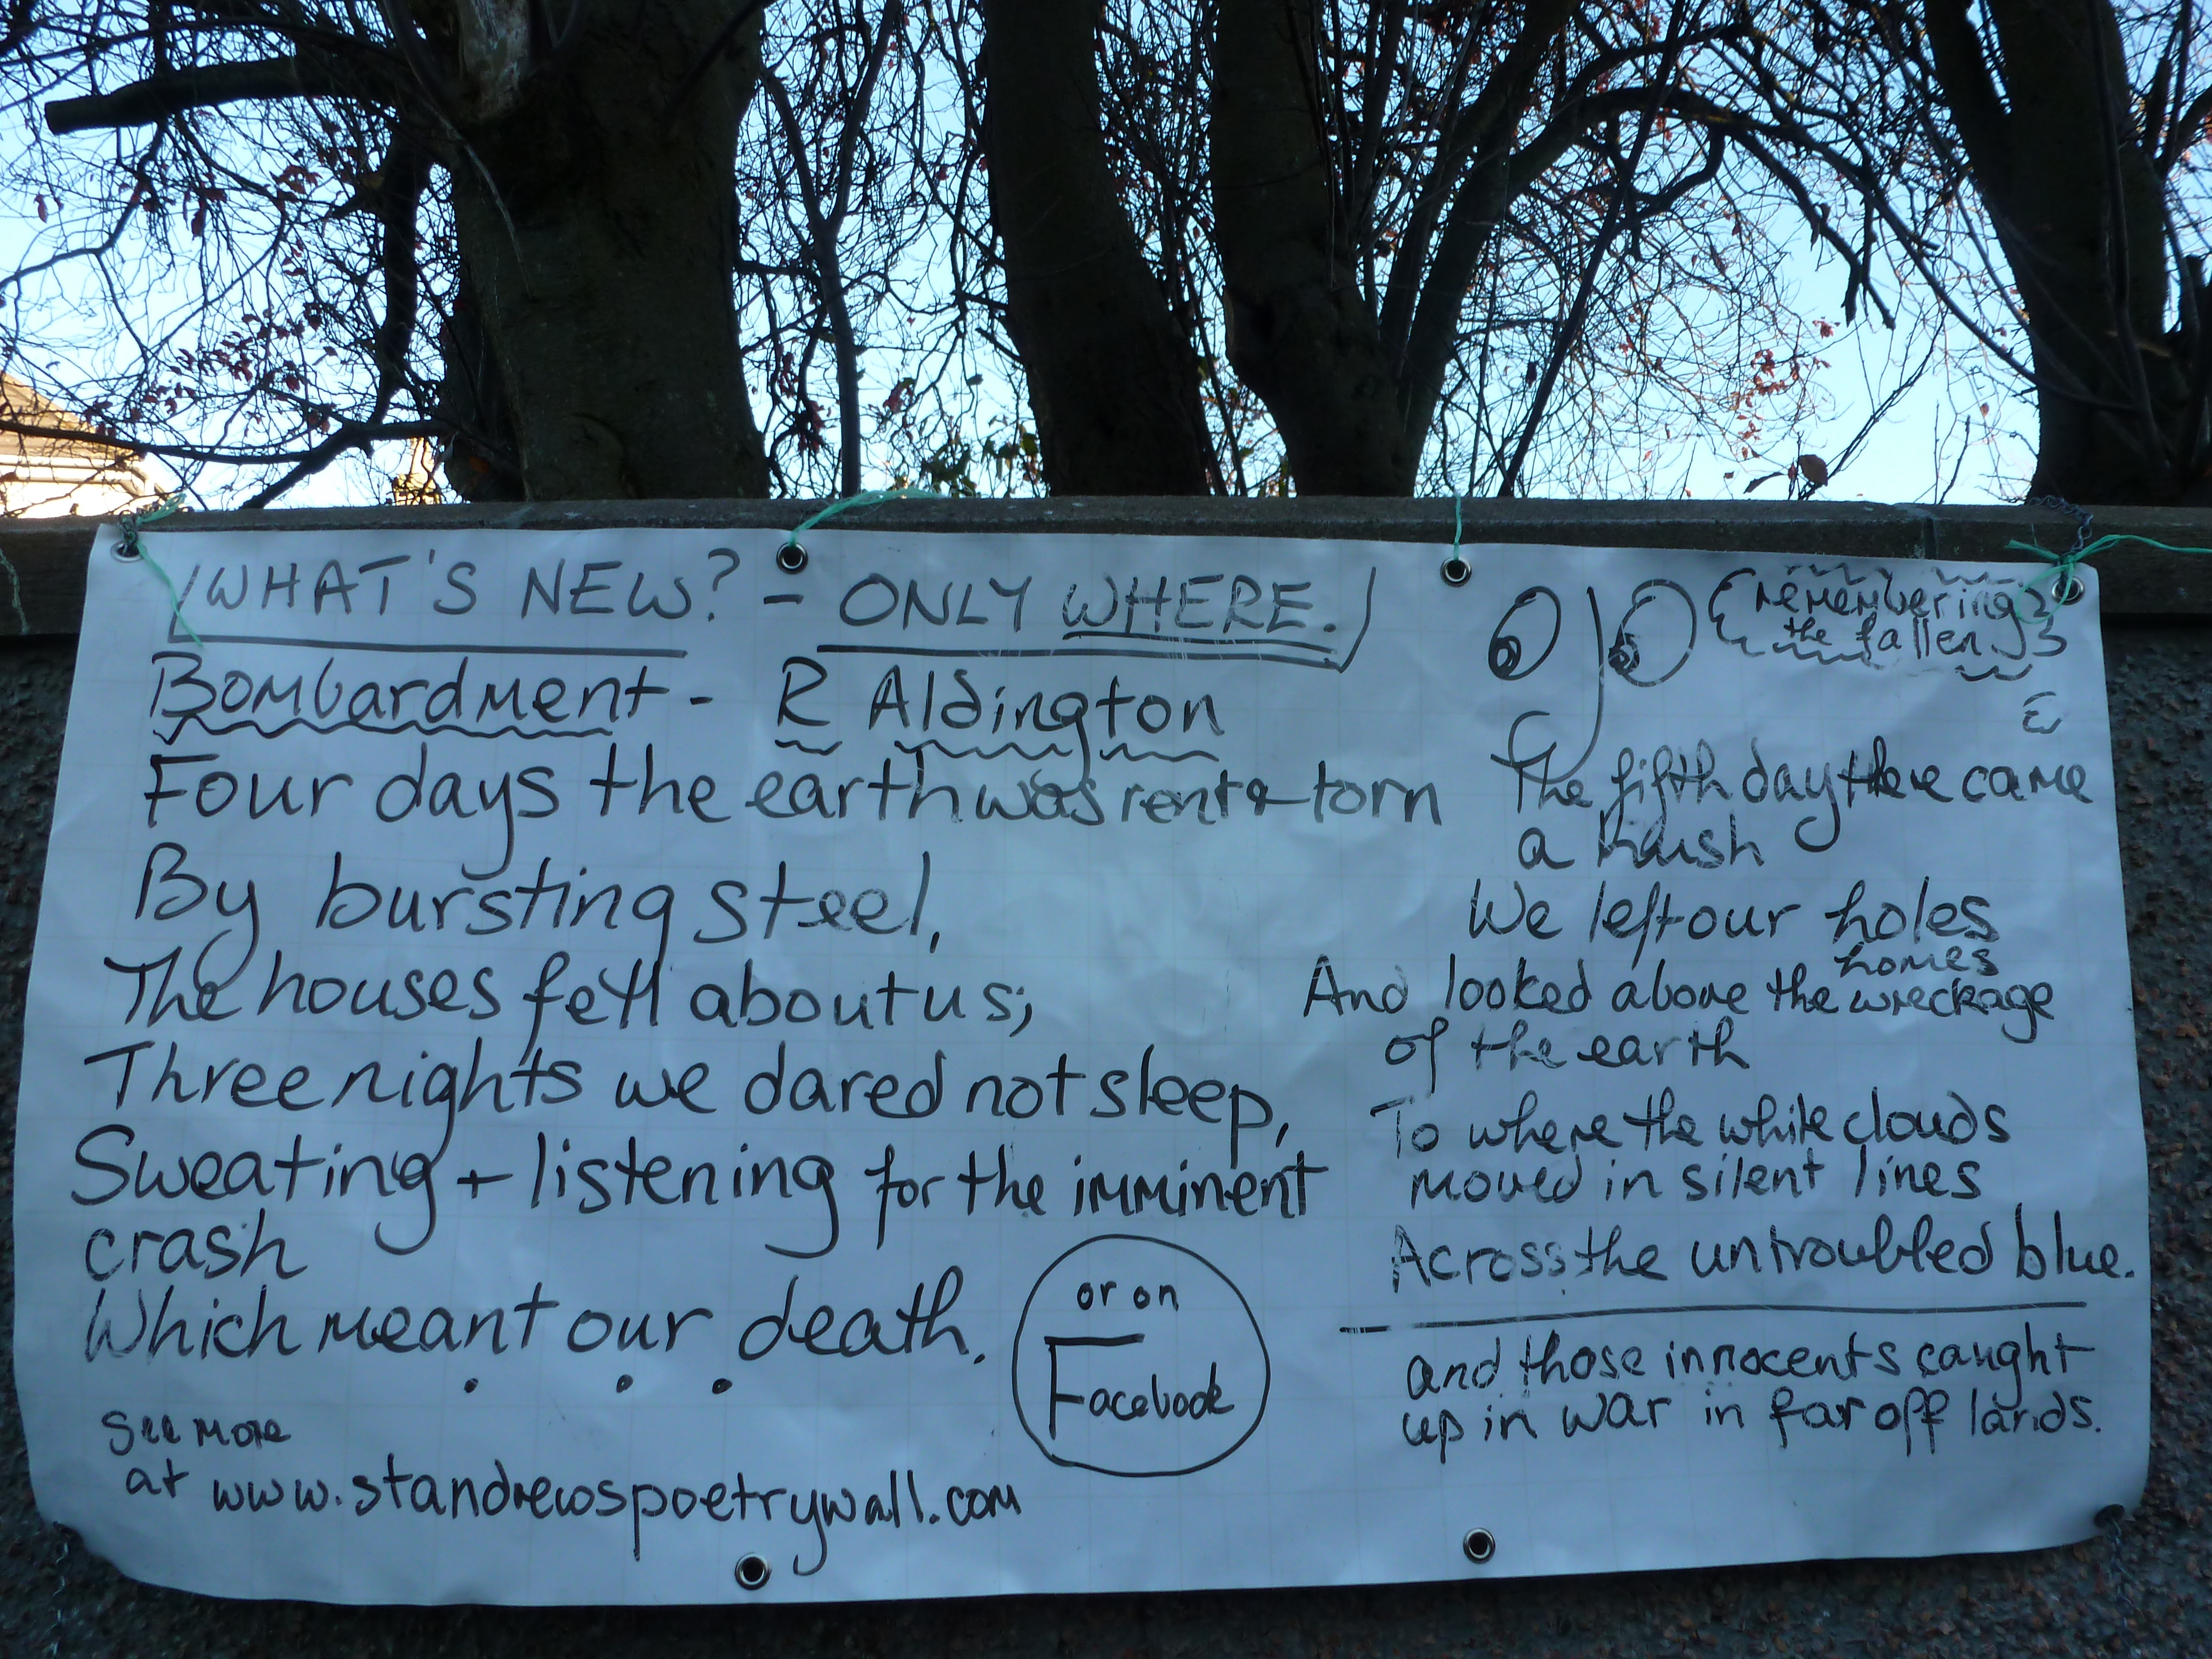 WHAT'S NEW? - ONLY WHERE.
Bombardment - R Aldington
Four days the earth was rent & torn
By bursting steel,
The houses fell about us;
Three nights we dared not sleep,
Sweating + listening for the imminent
crash
Which meant our death.
. . .
See more
at www.standrewspoetrywall.com
or on
Facebook
remembering
the fallen
The fifth day there came
a hush
We left our holes
homes
And looked above the wreckage
of the earth
To where the white clouds
moved in silent lines
Across the untroubled blue.
and those innocents caught
up in war in far off lands.